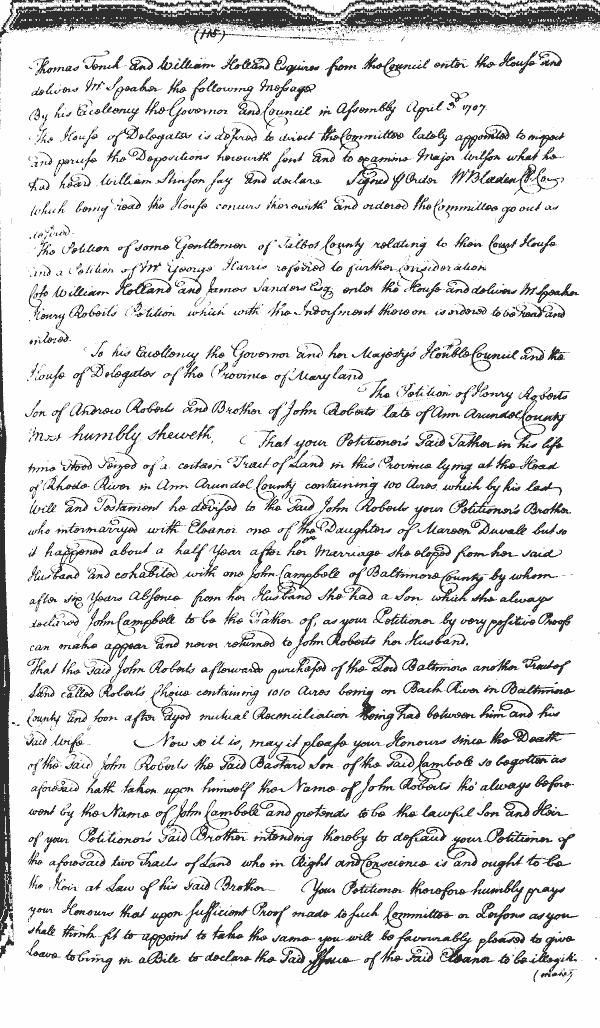 (115)
Thomas Tench and William Holland Esquires from the Council enter the House and
delivers Mr Speaker the following Message
By his Excellency the Governor and Council in Assembly April 3d 1707.
The House of Delegates is desired to direct the Committee lately appointed to inspect
and peruse the Depositions herewith sent and to examine Major Wilson what he
had heard William Stinson say and declare Signed p Order W Bladen Cl Cou
which being read the House concurs therewith and ordered the Committee go out as
desired.
The Petition of some Gentlemen of Talbot County relating to their Court House
and a Petition of Mr George Harris referred to further consideration
Colo William Holland and James Sanders Esq enter the House and delivers Mr Speaker
Henry Roberts Petition which with the Indorsment thereon is ordered to be read and
entered.
To his Excellency the Governor and her Majesty's Honble Council and the
House of Delegates of the Province of Maryland
The Petition of Henry Roberts
Son of Andrew Roberts and Brother of John Roberts late of Ann Arundel County
Most humbly sheweth, That your Petitioner's said Father in his life
time stood seized of a certain Tract of Land in this Province lying at the Head
of Rhode River in Ann Arundel County containing 100 Acres which by his last
Will and Testament he devised to the said John Roberts your Petitioner's Brother
who intermarryed with Eleanor one of the Daughters of Mareen Duvall but so
it happened about a half Year after her Marriage she eloped from her said
Husband and cohabited with one John Campbell of Baltimore County by whom
after six Years Absence from her Husband she had a Son which she always
declared John Campbell to be the Father of, as your Petitioner by very positive Proofs
can make appear and never returned to John Roberts her Husband.
That the said John Roberts afterwards purchased of the Lord Baltimore another Tract of
Land called Roberts Choice containing 1010 Acres being on Back River in Baltimore
County and soon after dyed mutual Reconciliation being had between him and his
said Wife Now so it is, may it please your Honours since the Death
of the said John Roberts the said Bastard Son of the said Cambele so begotten as
aforesaid hath taken upon himself the Name of John Roberts tho' always before
went by the Name of John Cambele and pretends to be the lawful Son and Heir
of your Petitioner's said Brother intending thereby to defraud your Petitioner of
the aforesaid two Tracts of Land who in Right and Conscience is and ought to be
the Heir at Law of his said Brother Your Petitioner therefore humbly prays
your Honours that upon sufficient Proof made to such Committee or Persons as you
shall think fit to appoint to take the same you will be favourably pleased to give
Leave to bring in a Bill to declare the said Issue of the said Eleanor to be illegiti-
(mate)